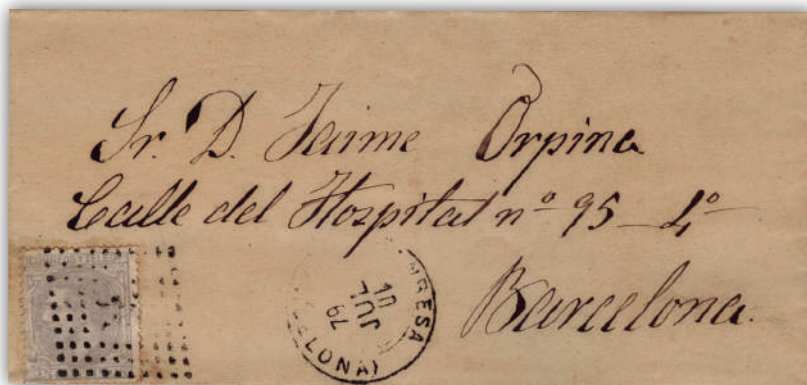 Sr. D. Jaime Orpina
Calle del Hospital nº 95_4º
Barcelona.
RESA
10
JUL
79
ELONA)